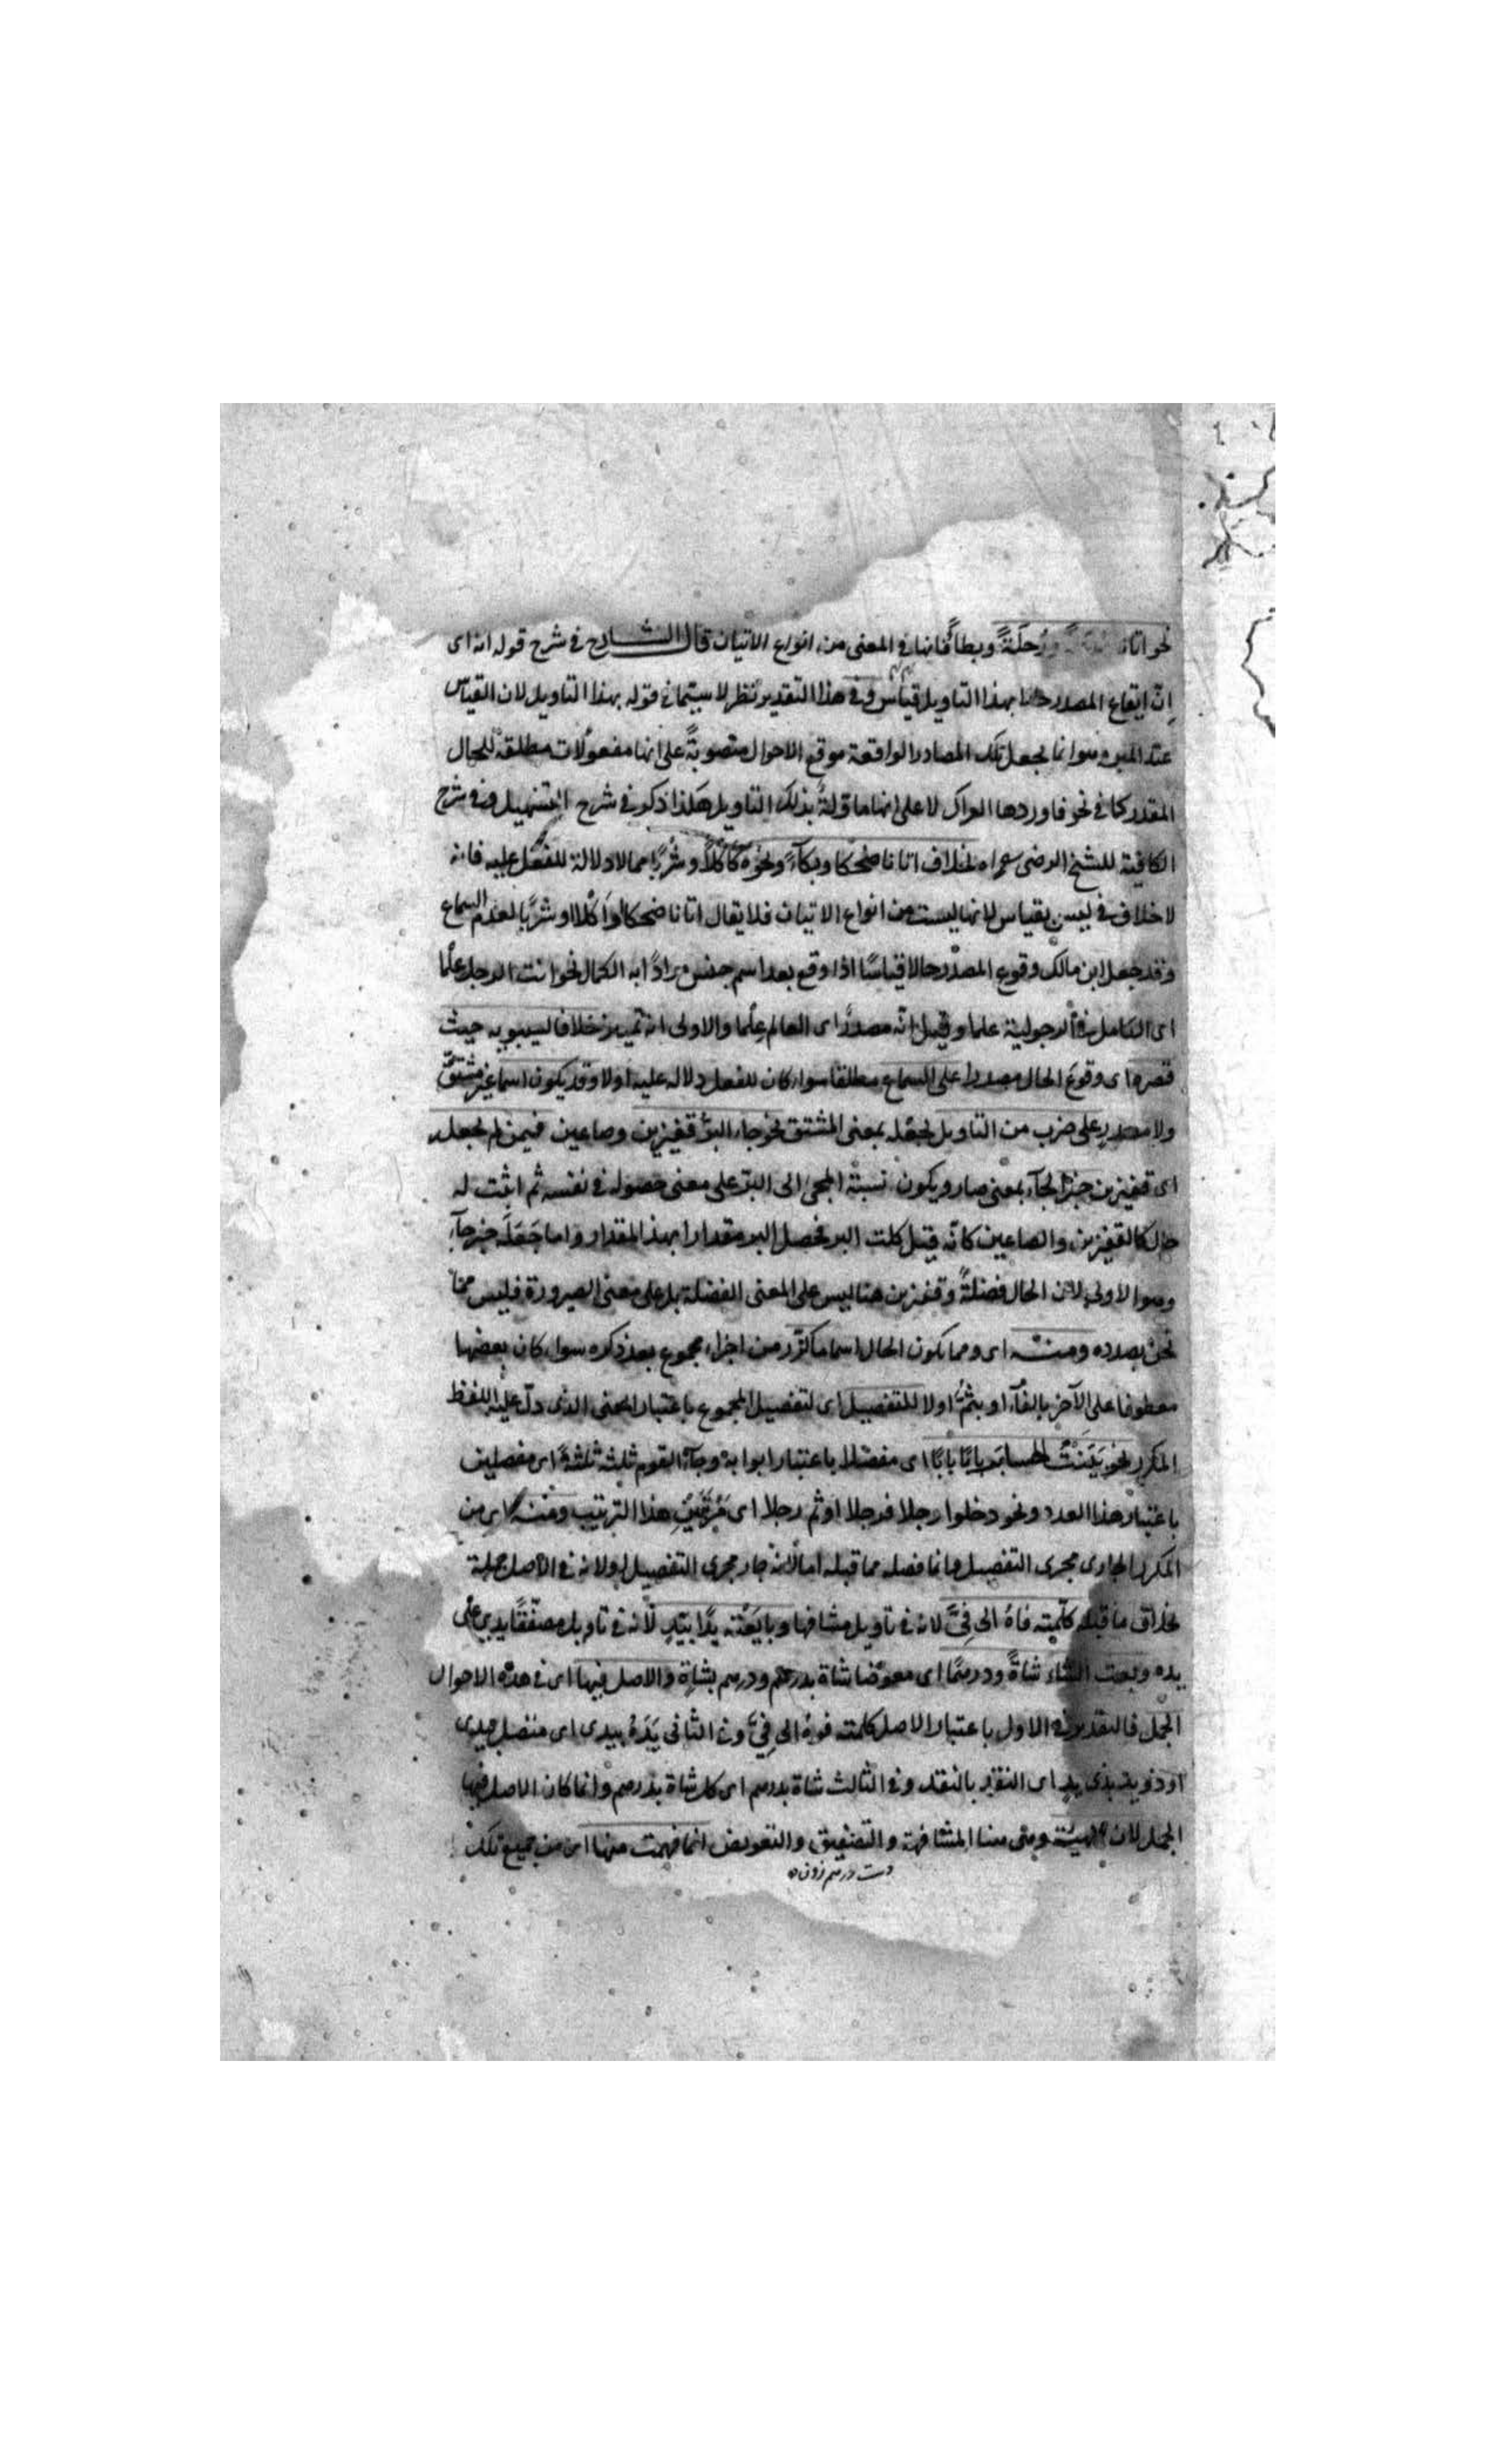 نحو اتانا ورُجلَةً وبطأً فانها في المعنى من انواع الاتيان قال الشارح في شرح قوله انه اى
انّ ايقاع المصدر حالا بهذا التاويل قياس وفي هذا التقدير نظر لا سيتما في قوله بهذا التاويل لان القياس
عند المبرد هو انما يجعل تلك المصادر الواقعة موقع الاحوال منصوبةً على انها مفعولات مطلقة للحال
المقدر كما في نحو فاوردها العراك لا على انها ماوّلةٌ بذلك التاويل هكذا ذكر في شرح التسهيل وفي شرح
الكافية للشيخ الرضى بخلاف اتانا ضحكا وبكآءً ونحوه كأكلاً وشُربًا مما لا دلالة للفعل عليه فانه
لا خلاف في ليس بقياس لانها ليست من انواع الاتيان فلا يقال اتانا ضحكا او اكلا او شربًا لعدم السماع
وقد جعل ابن مالك وقوع المصدر حالا قياسًا اذا وقع بعد اسم جنس مرادًا به الكمال نحو انت الرجل علمًا
اى الكامل في الرجولية علما وقيل انّه مصدرٌ اى العالم عِلْما والاولى انه تمييز خلافا لسيبويه حيث
قصره اى وقوعَ الحال مصدرا على السماع مطلقا سواء كان للفعل دلالة عليه اولا وقد يكون اسما غير مشتقّ
ولا مصدرٍ على ضرب من التاويل لجعله بمعنى المشتق نحو جاء البرّ قفيزين وصاعين فيمن لم يجعله
اى قفيزين خبرًا لجآء بمعنى صار ويكون نسبة المجئ الى البرّ على معنى حصوله في نفسه ثم اثبت له
حال كالقفيزين والصاعين كانّه قيل كلت البر فحصل البر مقدارا بهذا المقدار واما جَعَلَه خبر جآء
وهو الاولى لان الحال فضلةٌ وقفيزين هنا ليس على المعنى الفضلة بل على معنى الصيرورة فليس ممّا
نحن بصدده ومنه اى ومما يكون الحال اسما ما كرّر من اجزاء مجموع بعد ذكره سواء كان بعضها
معطوفا على الآخر بالفآء او بثمّ اولا للتفصيل اى لتفصيل المجموع باعتبار المعنى الذى دلّ عليه اللفظ
المكرر نحو بيّنتُ الحساب بابًا بابًا اى مفصّلا باعتبار ابوابه وجآء القوم ثلثة ثلثةً اى مفصلين
باعتبار هذا العدد ونحو دخلوا رجلا فرجلا او ثم رجلا اى مرتّبين هذا الترتيب ومنه اى من
المكرر الجارى مجرى التفصيل وانما فصله مما قبله اما لانه جار مجرى التفصيل او لانه في الاصل جملة
بخلاف ما قبله كلّمته فاهُ الى فِيَّ لانه في تاويل مشافها وبايَعْته يدًا بيَدٍ لانه في تاويل مصفّقًا يدى على
يده وبعت الشاء شاةً ودرهمًا اى معوّضا شاة بدرهم ودرهم بشاة والاصل فيها اى في هذه الاحوال
الجمل فالتقدير في الاول باعتبار الاصل كلمته فوهُ الى فِيَّ وفي الثانى يَدُهُ بيدى اى متصل بيدى
او ذو يد بذى يدٍ اى النقد بالنقد وفي الثالث شاة بدرهم اى كل شاة بدرهم وانما كان الاصل فيها
الجمل لان الهيئة وهى هنا المشافهة والتصفيق والتعويض انما فهمت منها اى من جميع تلك
دست درهم زدن